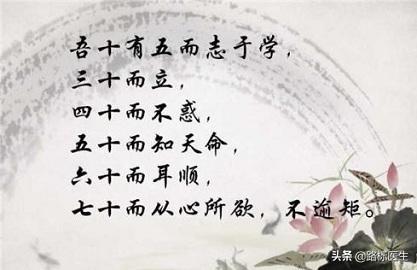 吾十有五而志于学，
三十而立，
四十而不惑，
五十而知天命，
六十而耳顺，
七十而从心所欲，不逾矩。
头条 @路标医生